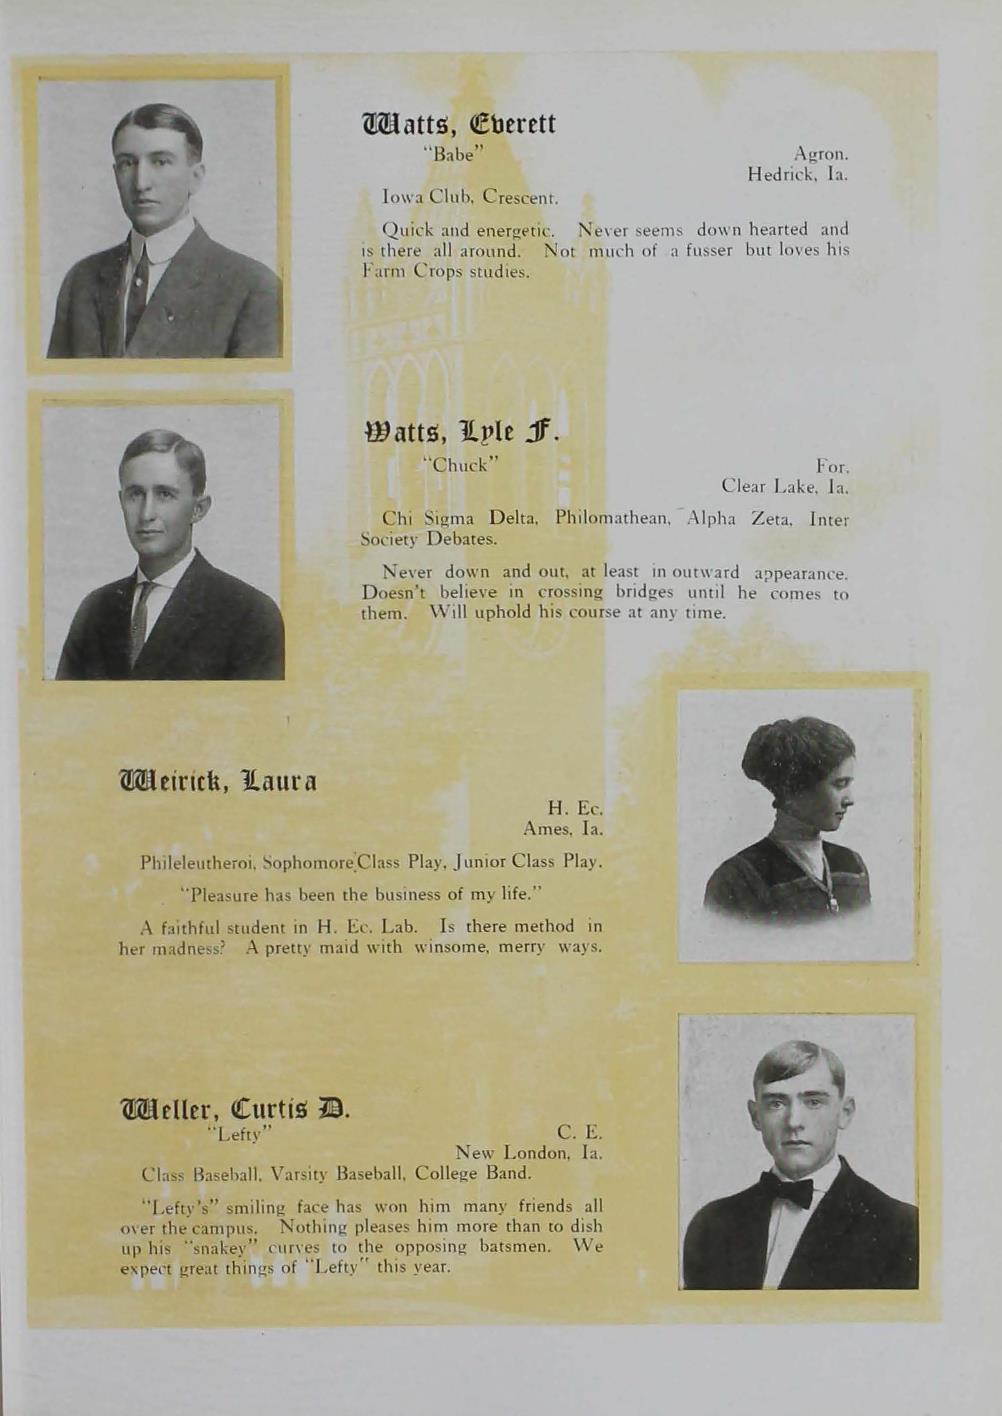 Watts, Everett
"Babe" Agron.
Hedrick, Ia.
Iowa Club, Crescent.
Quick and energetic. Never seems down hearted and
is there all around. Not much of a fusser but loves his
Farm Crops studies.
Watts, Lyle F.
"Chuck" For.
Clear Lake, Ia.
Chi Sigma Delta, Philomathean, Alpha Zeta, Inter
Society Debates.
Never down and out, at least in outward appearance.
Doesn't believe in crossing bridges until he comes to
them. Will uphold his course at any time.
Weirick, Laura
H. Ec.
Ames, Ia.
Phileleutheroi, Sophomore Class Play, Junior Class Play.
"Pleasure has been the business of my life."
A faithful student in H. Ec. Lab. Is there method in
her madness? A pretty maid with winsome, merry ways.
Weller, Curtis D.
"Lefty" C. E.
New London, Ia.
Class Baseball, Varsity Baseball, College Band.
"Lefty's" smiling face has won him many friends all
over the campus. Nothing pleases him more than to dish
up his "snakey" curves to the opposing batsmen. We
expect great things of "Lefty" this year.